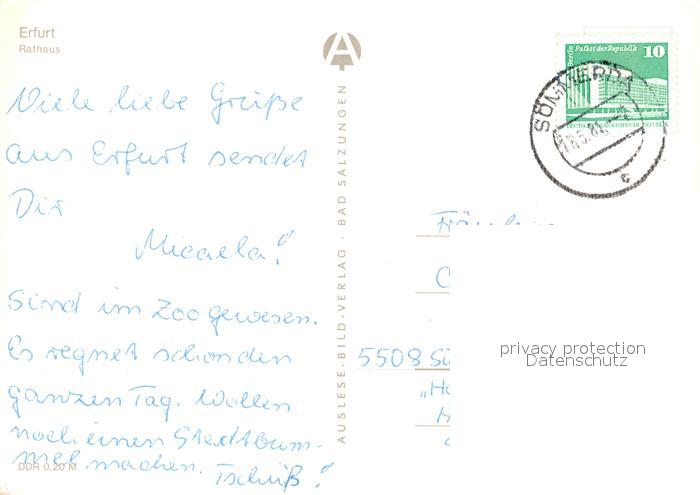 Erfurt
Rathaus
Viele liebe Grüße
aus Erfurt sendet
Dir
Micaela!
Sind im Zoo gewesen.
Es regnet schon den
ganzen Tag. Wollen
noch einen Stadtbum-
mel machen. Tschüß!
DDR 0,20 M
AUSLESE-BILD-VERLAG · BAD SALZUNGEN
Berlin Palast der Republik 10
DEUTSCHE DEMOKRATISCHE REPUBLIK
SÖMMERDA
c
5508
privacy protection
Datenschutz